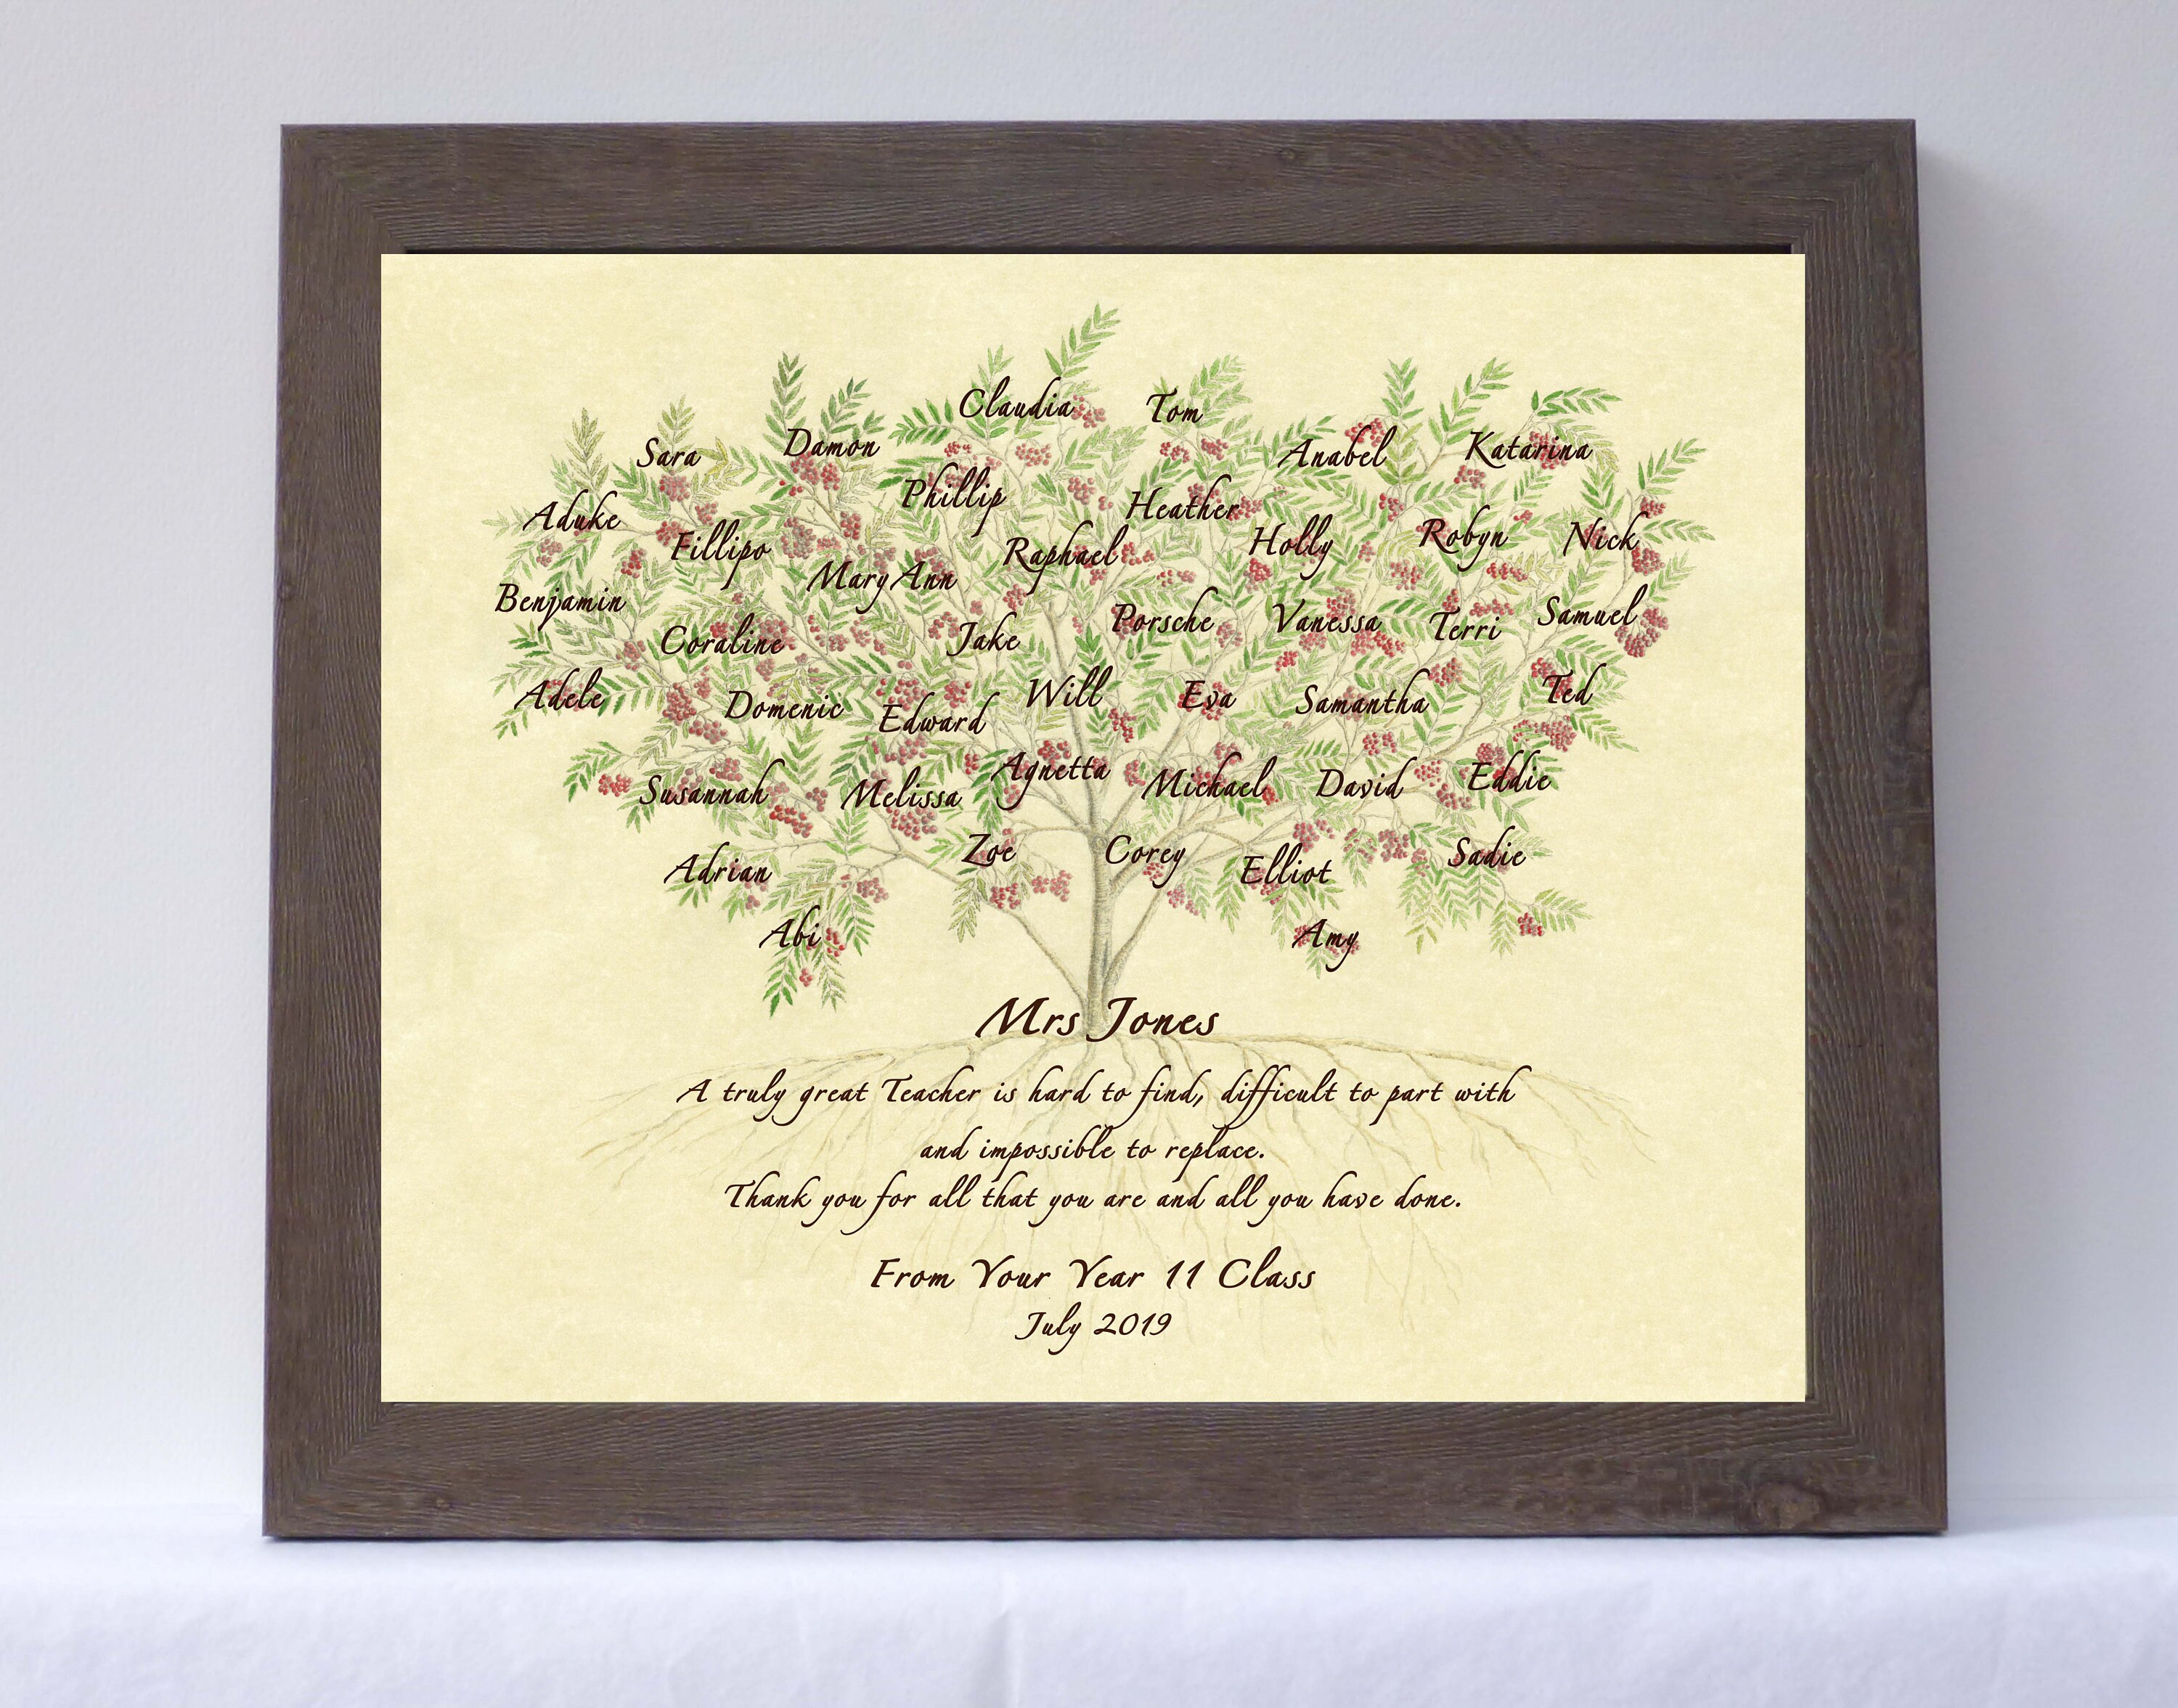 Claudia
Tom
Sara
Damon
Anabel
Katarina
Phillip
Heather
Aduke
Fillipo
Raphael
Holly
Robyn
Nick
Mary Ann
Benjamin
Coraline
Jake
Porsche
Vanessa
Terri
Samuel
Adele
Domenic
Edward
Will
Eva
Samantha
Ted
Susannah
Melissa
Agnetta
Michael
David
Eddie
Adrian
Zoe
Corey
Elliot
Sadie
Abi
Amy
Mrs Jones
A truly great Teacher is hard to find, difficult to part with
and impossible to replace.
Thank you for all that you are and all you have done.
From Your Year 11 Class
July 2019